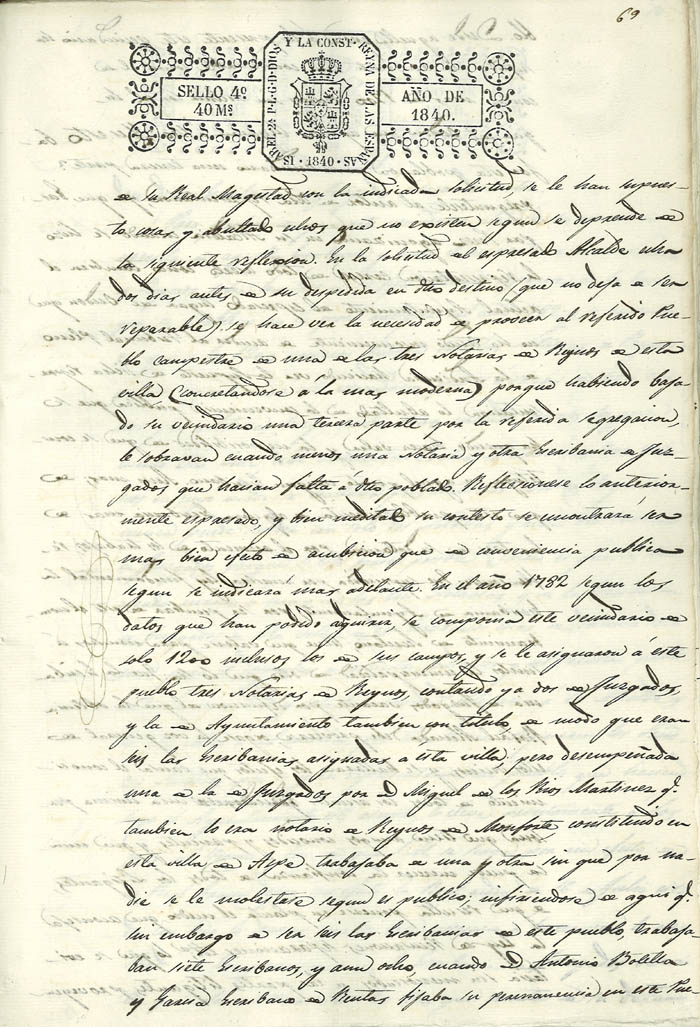 69
SELLO 4º
40 Ms
ISABEL 2ª P. L. G. D. DIOS Y LA CONST. REYNA DE LAS ESPAÑAS
· 1840 ·
AÑO DE
1840.
de Su Real Magestad con la indicada solicitud, se le han supues-
to cosas y abultado otros que no existen segun se deprende de
la siguiente reflexion. En la solicitud del espresado Alcalde una
dos dias antes de su despedida en dho destino (que no deja de ser
reparable) se hace ver la necesidad de proveer al referido Pue-
blo campestre de una de las tres Notarias de Reynos de esta
villa (concretandose á la mas moderna) porque habiendo baja-
do su vecindario una tercera parte por la referida segregacion,
le sobravan cuando menos una Notaria y otra Escribania de Juz-
gados que hacian falta a dho poblado. Reflecsionese lo anterior-
mente espresado, y bien meditado su contesto se encontrará ser
mas bien efecto de ambicion que de conveniencia publica
segun se indicará mas adelante. En el año 1782 segun los
datos que han podido aquirir, se componia este vecindario de
solo 1200 inclusos los de sus campos, y se le asignaron á este
pueblo tres Notarias de Reynos, contando ya dos de Juzgados,
y la de Ayuntamiento tambien con titulo, de modo que eran
seis las Escribanias asignadas á esta villa; pero desempeñada
una de la de Juzgados por D. Miguel de los Rios Martinez q.
tambien lo era notario de Reynos de Monforte constituido en
esta villa de Aspe trabajaba de una y otra sin que por na-
die se le molestase segun es publico; infiriendose de aqui q.
sin embargo de ser seis las Escribanias de este pueblo, trabaja
ban siete Escribanos, y aun ocho, cuando D. Antonio Botella
y Garcia Escribano de Rentas fijaba su permanencia en este Pue-